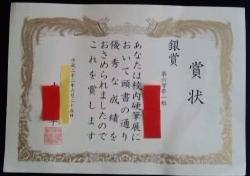 賞状
銀賞
第六学年一組
あなたは校内硬筆展に
おいて頭書の通り
優秀な成績を
おさめられましたので
これを賞します